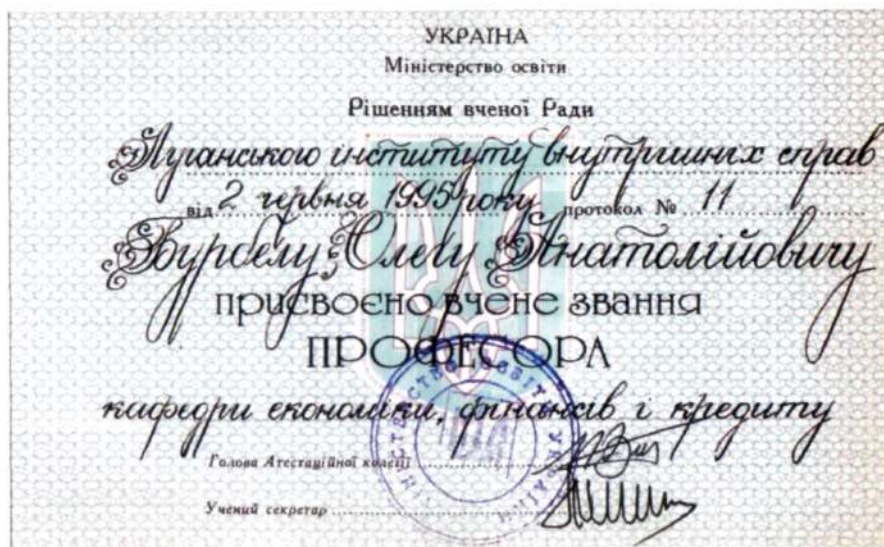 УКРАЇНА
Міністерство освіти
Рішенням вченої Ради
Луганського інституту внутрішніх справ
від 2 червня 1995 року протокол № 11
Бурбелу Олегу Анатолійовичу
присвоєно вчене звання
ПРОФЕСОРА
кафедри економіки, фінансів і кредиту
Голова Атестаційної колегії
Учений секретар
МІНІСТЕРСТВО ОСВІТИ УКРАЇНИ